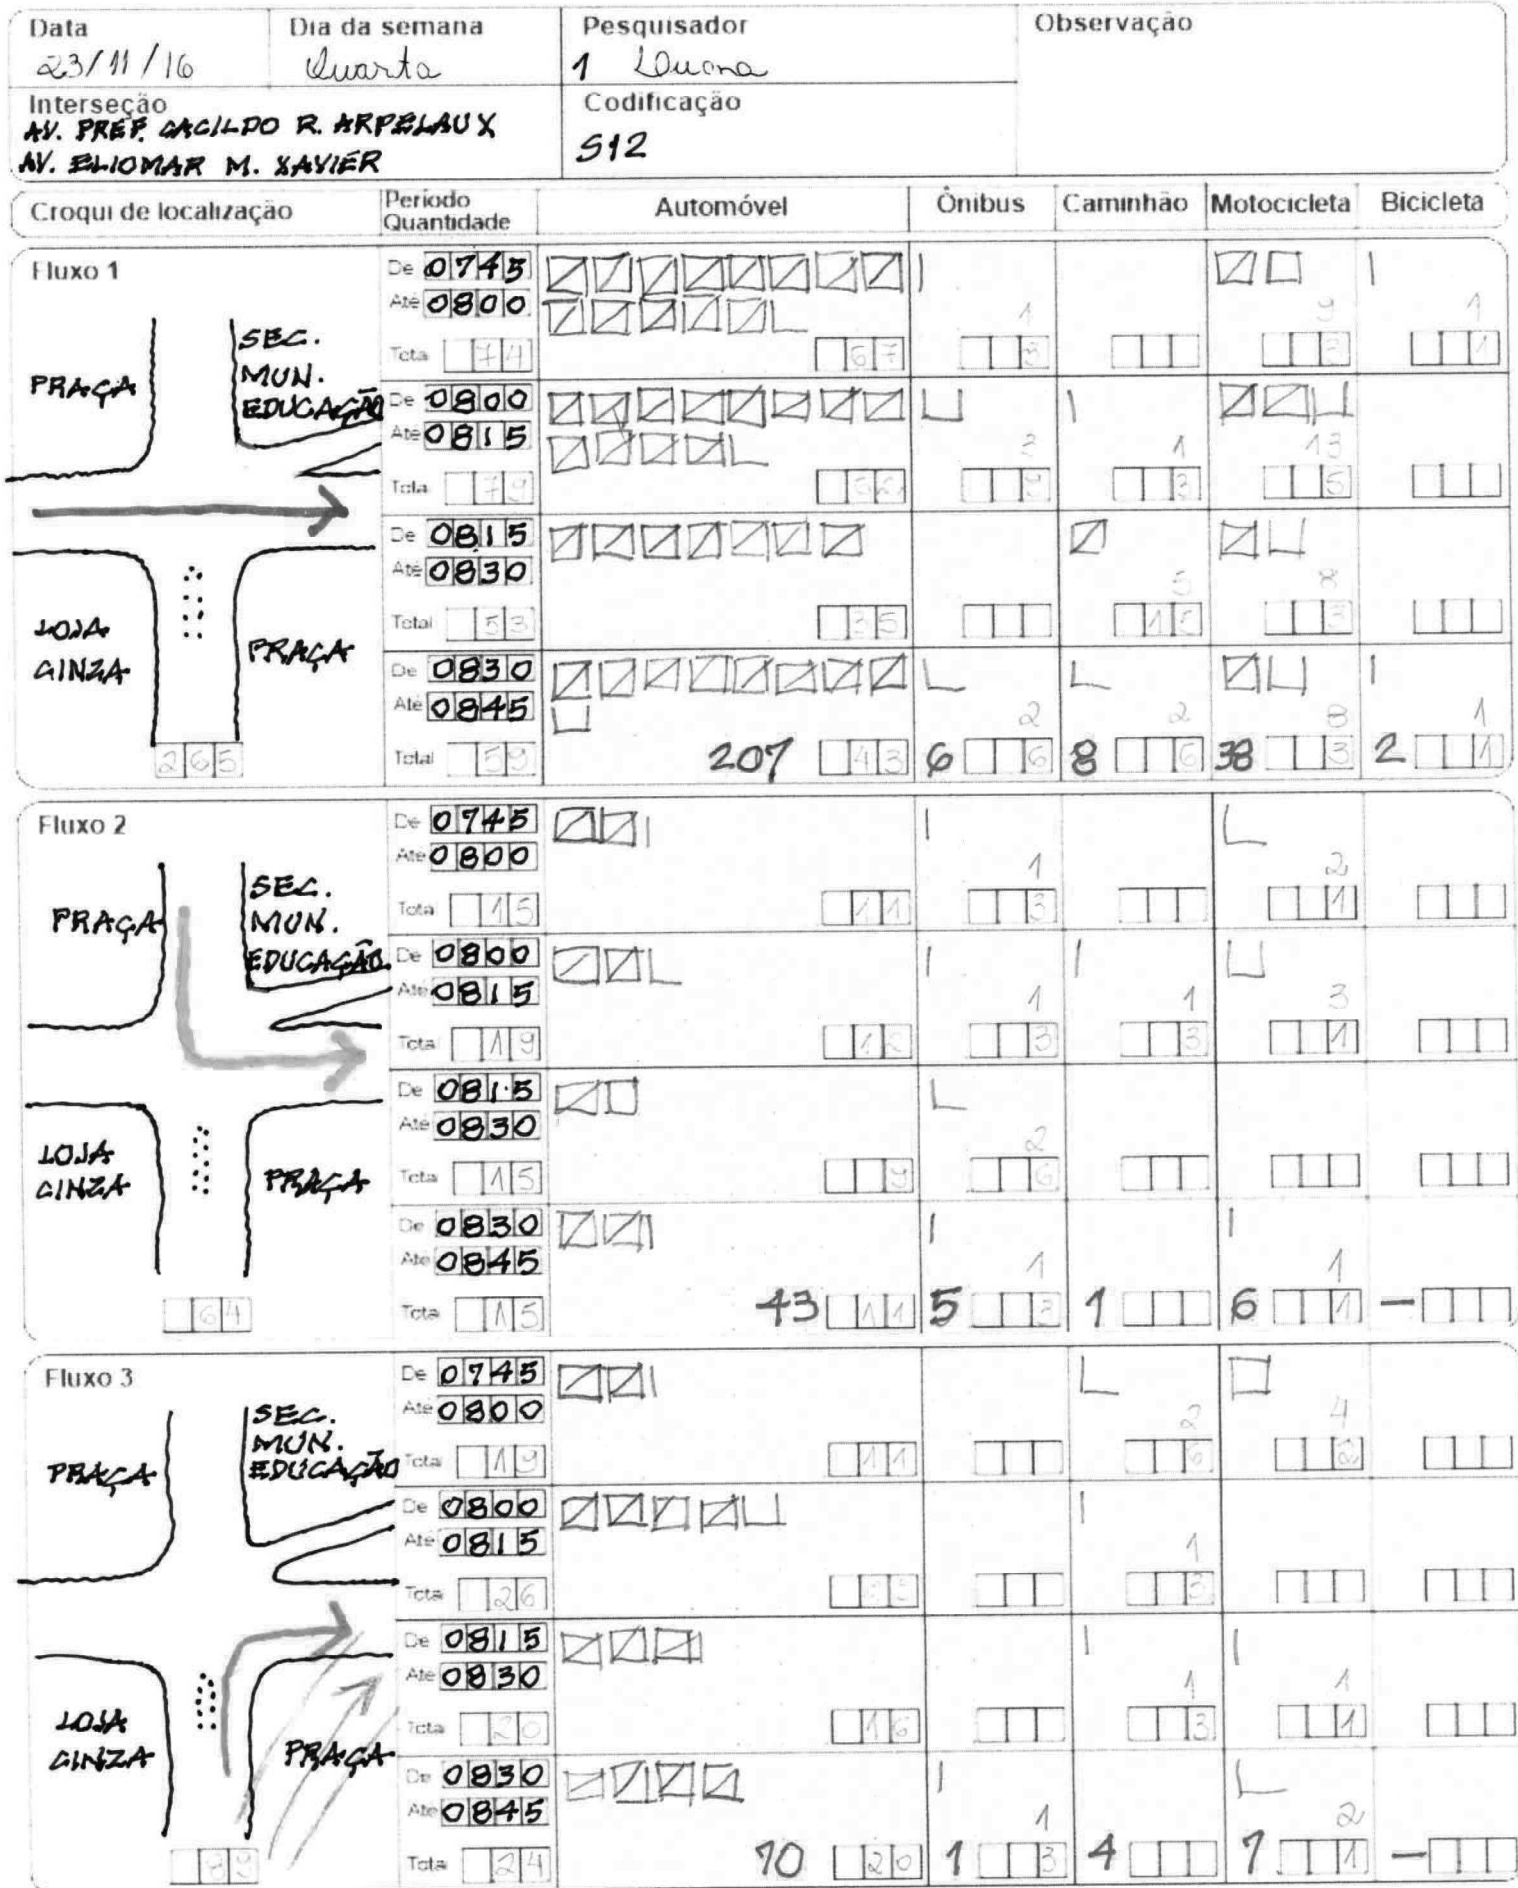 Data
23/11/16
Dia da semana
Quarta
Pesquisador
1
Observação
Interseção
AV. PREF. CACILDO R. ARPELAUX
AV. ELIOMAR M. XAVIER
Codificação
S12
Croqui de localização
Período Quantidade
Automóvel
Ônibus
Caminhão
Motocicleta
Bicicleta
Fluxo 1
PRAÇA
SEC.
MUN.
EDUCAÇÃO
LOJA
CINZA
PRAÇA
265
De 0745
Até 0800
1 9 1
Tota 74 67 3 3 1
De 0800
Até 0815
3 1 13
Tota 79 62 9 3 5
De 0815
Até 0830
5 8
Total 53 35 15 3
De 0830
Até 0845
2 2 8 1
Total 59 207 43 6 6 8 6 38 3 2 1
Fluxo 2
PRAÇA
SEC.
MUN.
EDUCAÇÃO
LOJA
CINZA
PRAÇA
64
De 0745
Até 0800
1 2
Tota 15 11 3 1
De 0800
Até 0815
1 1 3
Total 19 12 3 3 1
De 0815
Até 0830
2
Tota 15 9 6
De 0830
Até 0845
1 1
Tota 15 43 11 5 3 1 6 1 –
Fluxo 3
PRAÇA
SEC.
MUN.
EDUCAÇÃO
LOJA
CINZA
PRAÇA
89
De 0745
Até 0800
2 4
Total 19 11 6 2
De 0800
Até 0815
1
Tota 26 3
De 0815
Até 0830
1 1
Tota 20 16 3 1
De 0830
Até 0845
1 2
Tota 24 70 20 1 3 4 7 1 –